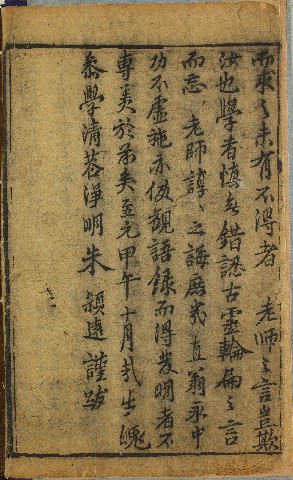 而求之未有不得者　老師之言豈欺
汝也學者慎毋錯認古靈輪扁之言
而忘　老師諄〻之誨庶幾直翁永中
功不虛施亦俊覩語錄而得發明者不
專美於前矣至元甲午十月哉生魄
參學清苕淨明朱　穎遠謹跋